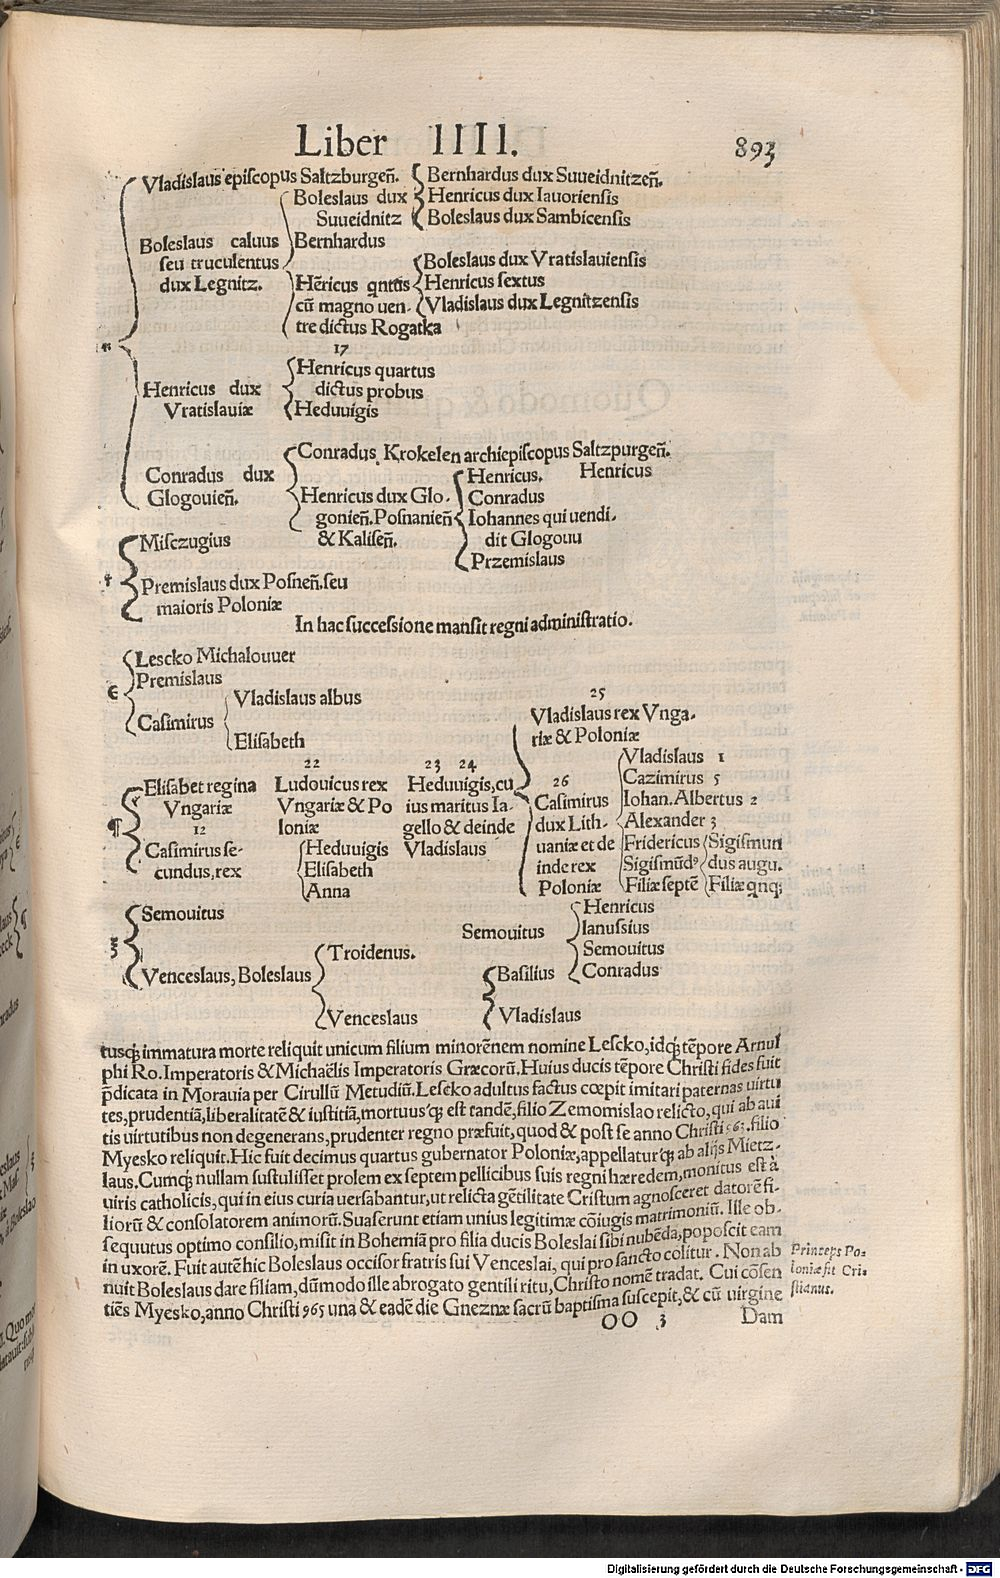 Liber IIII. 893
Vladislaus episcopus Saltzburgeñ.
Boleslaus caluus
seu truculentus
dux Legnitz.
Boleslaus dux
Suueidnitz
Bernhardus dux Suueidnitzeñ.
Henricus dux Iauoriensis
Boleslaus dux Sambicensis
Bernhardus
Hẽricus qnttus
cũ magno uen-
tre dictus Rogatka
Boleslaus dux Vratislauiensis
Henricus sextus
Vladislaus dux Legnitzensis
Henricus dux
Vratislauiæ
17
Henricus quartus
dictus probus
Heduuigis
Conradus dux
Glogouieñ.
Conradus Krokelen archiepiscopus Saltzpurgeñ.
Henricus dux Glo-
gonieñ.Posnanieñ
& Kaliseñ.
Henricus. Henricus
Conradus
Iohannes qui uendi-
dit Glogouu
Przemislaus
Misczugius
Premislaus dux Posneñ.seu
maioris Poloniæ
In hac successione mansit regni administratio.
Lescko Michalouuer
Premislaus
Casimirus
Vladislaus albus
Elisabeth
Elisabet regina
Vngariæ
12
Casimirus se-
cundus,rex
22
Ludouicus rex
Vngariæ & Po
loniæ
Heduuigis
Elisabeth
Anna
23 24
Heduuigis,cu
ius maritus Ia-
gello & deinde
Vladislaus
25
Vladislaus rex Vnga-
riæ & Poloniæ
26
Casimirus
dux Lith-
uaniæ et de
inde rex
Poloniæ
Vladislaus 1
Cazimirus 5
Iohan.Albertus 2
Alexander 3
Fridericus
Sigismũdꝰ
Filiæ septẽ
Sigismun
dus augu.
Filiæ qnq;
Semouitus
Venceslaus, Boleslaus
Troidenus.
Venceslaus
Semouitus
Henricus
Ianussius
Semouitus
Conradus
Basilius
Vladislaus
tusq; immatura morte reliquit unicum filium minorẽnem nomine Lescko,idq; tẽpore Arnul
phi Ro.Imperatoris & Michaëlis Imperatoris Græcorũ.Huius ducis tẽpore Christi fides fuit
p̃dicata in Morauia per Cirullũ Metudiũ.Lescko adultus factus cœpit imitari paternas uirtu
tes,prudentiã,liberalitatẽ & iustitiã,mortuusq; est tandẽ,filio Zemomislao relicto,qui ab aui
tis uirtutibus non degenerans,prudenter regno præfuit,quod & post se anno Christi 963.filio
Myesko reliquit.Hic fuit decimus quartus gubernator Poloniæ,appellaturq; ab alijs Mietz-
laus.Cumq; nullam sustulisset prolem ex septem pellicibus suis regni hæredem,monitus est à
uiris catholicis,qui in eius curia uersabantur,ut relicta gẽtilitate Cristum agnosceret datorẽ fi-
liorũ & consolatorem animorũ.Suaserunt etiam unius legitimæ cõiugis matrimoniũ. Ille ob-
sequutus optimo consilio,misit in Bohemiã pro filia ducis Boleslai sibi nubẽda,poposcit eam
in uxorẽ. Fuit autẽ hic Boleslaus occisor fratris sui Venceslai, qui pro sancto colitur. Non ab
nuit Boleslaus dare filiam, dũmodo ille abrogato gentili ritu,Christo nomẽ tradat. Cui cõsen
tiẽs Myesko,anno Christi 965 una & eadẽ die Gneznæ sacrũ baptisma suscepit,& cũ uirgine
Princeps Po-
loniæ fit Cri-
stianus.
OO 3 Dam
Digitalisierung gefördert durch die Deutsche Forschungsgemeinschaft - DFG